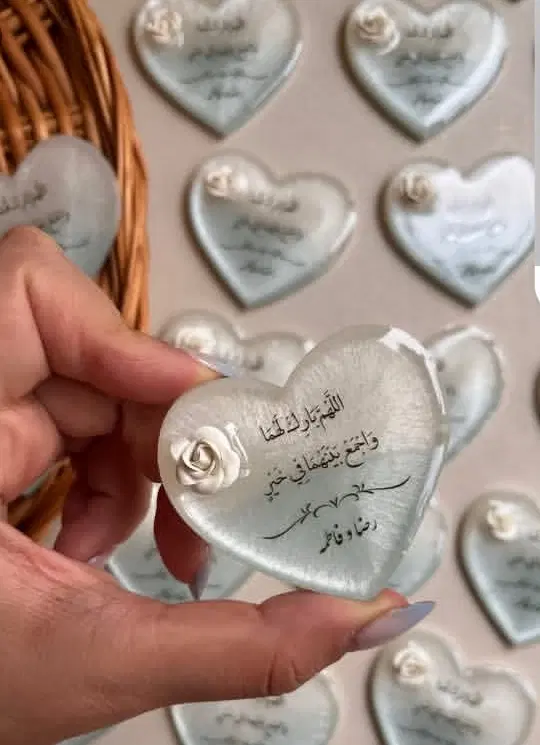 اللَّهُمَّ بَارِكْ لَهُمَا
وَاجْمَعْ بَيْنَهُمَا فِي خَيْرٍ
رضا و فاطمه